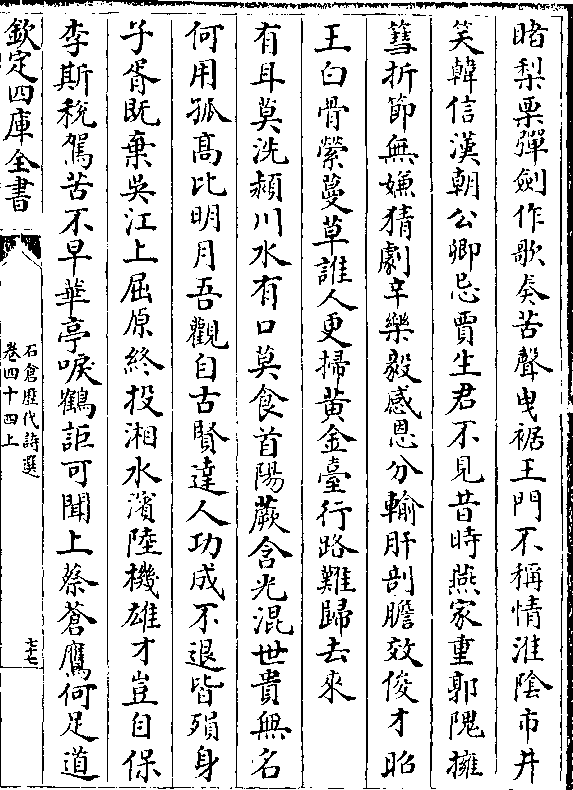 賭梨栗彈劍作歌奏苦聲曳裾王門不稱情淮陰市井
笑韓信漢朝公卿忌賈生君不見昔時燕家重郭隗擁
篲折節無嫌猜劇辛樂毅感恩分輸肝剖膽效俊才昭
王白骨縈蔓草誰人更掃黃金臺行路難歸去來
有耳莫洗潁川水有口莫食首陽蕨含光混世貴無名
何用孤髙比明月吾觀自古賢達人功成不退皆殞身
子胥既棄吳江上屈原終投湘水濱陸機雄才豈自保
李斯稅駕苦不早華亭唳鶴詎可聞上蔡蒼鷹何足道
欽定四庫全書
石倉歷代詩選
卷四十四上